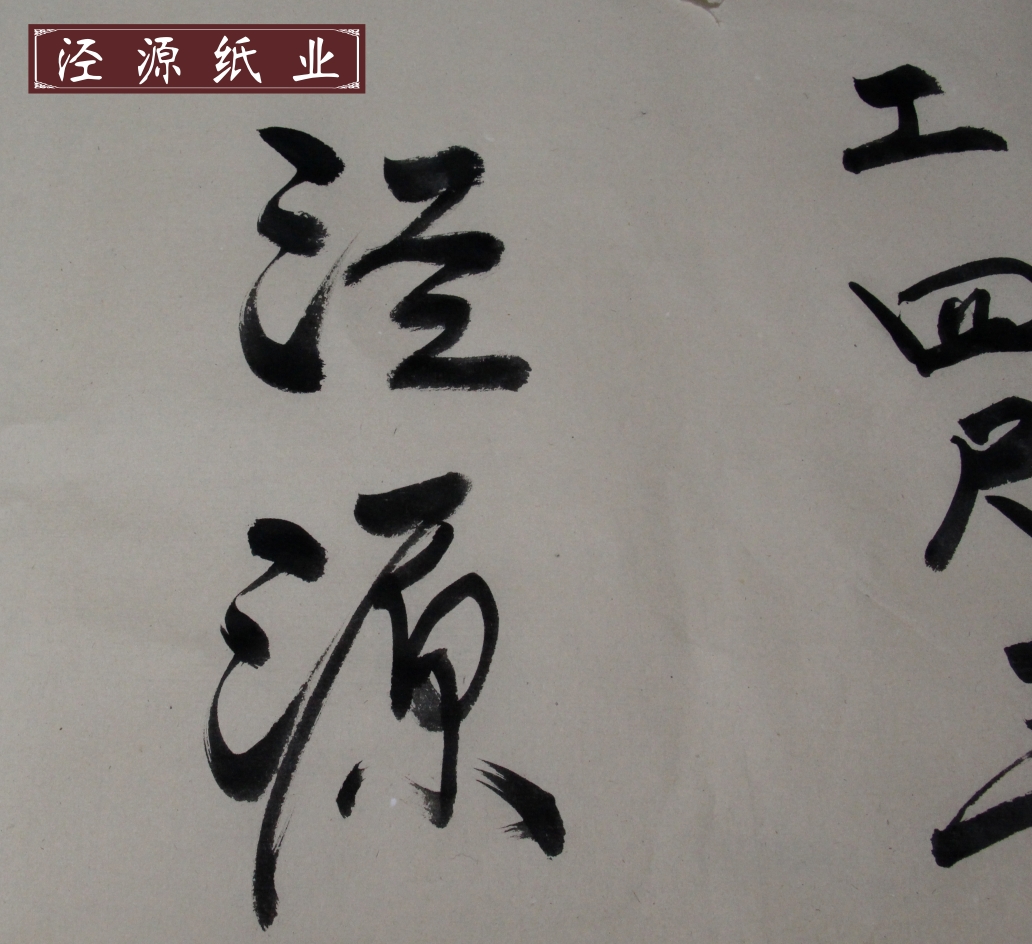 泾源纸业
工四尺三
泾源